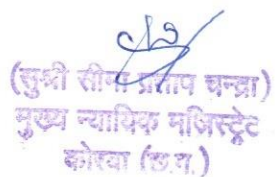 (सुश्री सीमा प्रताप चन्द्रा)
मुख्य न्यायिक मजिस्ट्रेट
कोरबा (छ.ग.)